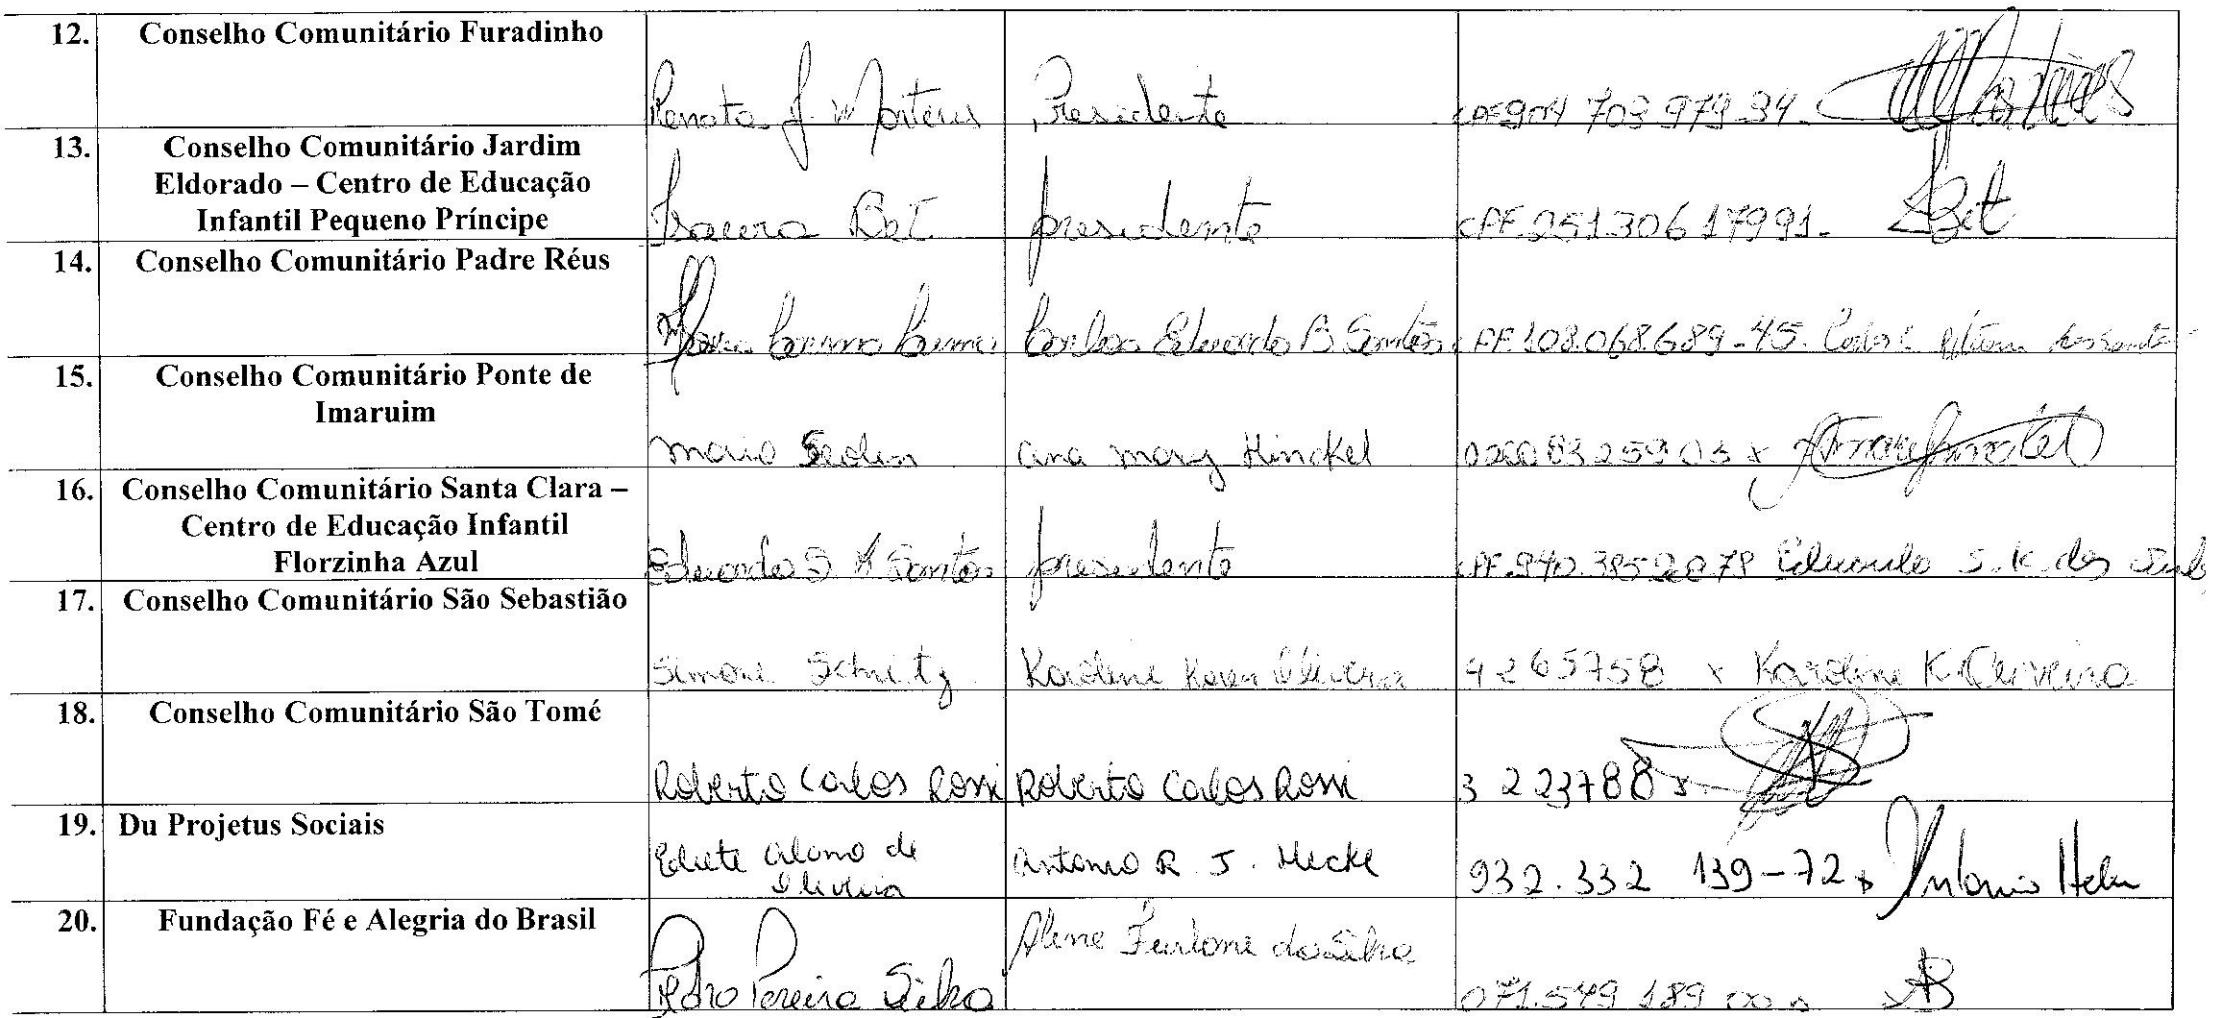 12. Conselho Comunitário Furadinho
Renata J. W Martins Presidente CPF 904 703 979-34-
13. Conselho Comunitário Jardim
Eldorado – Centro de Educação
Infantil Pequeno Príncipe
Iracera Bet presidente CPF 25130617991- Bet
14. Conselho Comunitário Padre Réus
Carlos Eduardo B. Santos CPF 108.068.689-45
15. Conselho Comunitário Ponte de
Imaruim
Maria ana mary Hinckel x
16. Conselho Comunitário Santa Clara –
Centro de Educação Infantil
Florzinha Azul
Eduardo S. K Santos presidente CPF. Eduardo S. K. dos
17. Conselho Comunitário São Sebastião
Simone Schmitz Karoline Keren Oliveira 4265758 x Karoline K. Oliveira
18. Conselho Comunitário São Tomé
Roberto Carlos Rossi Roberto Carlos Rossi 3 223788 x
19. Du Projetus Sociais
Edicte de Oliveira Antonio R. J. Hecke 932.332 139-72 x Antonio
20. Fundação Fé e Alegria do Brasil
Pedro Pereira Silva Aline da Silva 071.549 189 00